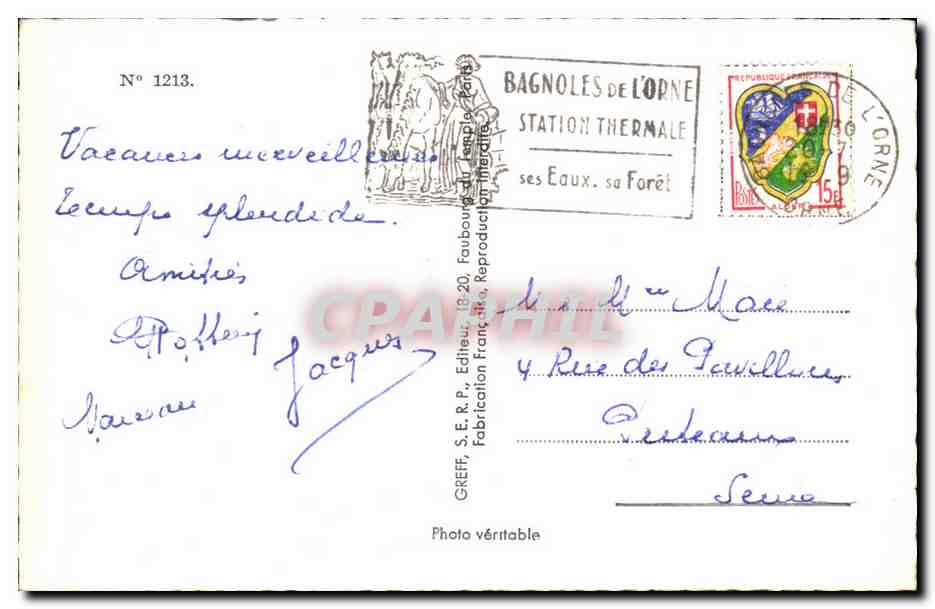 N° 1213.
Vacances merveilleuses
Temps splendide.
Amitiés
Jacques
BAGNOLES DE L'ORNE
STATION THERMALE
ses Eaux. sa Forêt
REPUBLIQUE FRANÇAISE
POSTES
15F
ALGER
DE L'ORNE
ORNE
GREFF, S.E.R.P., Editeur, 18-20, Faubourg du Temple, Paris
Fabrication Française, Reproduction Interdite
M & Mme Macé
4 Rue des Pavillons
Puteaux
Seine
Photo véritable
CPAPHIL